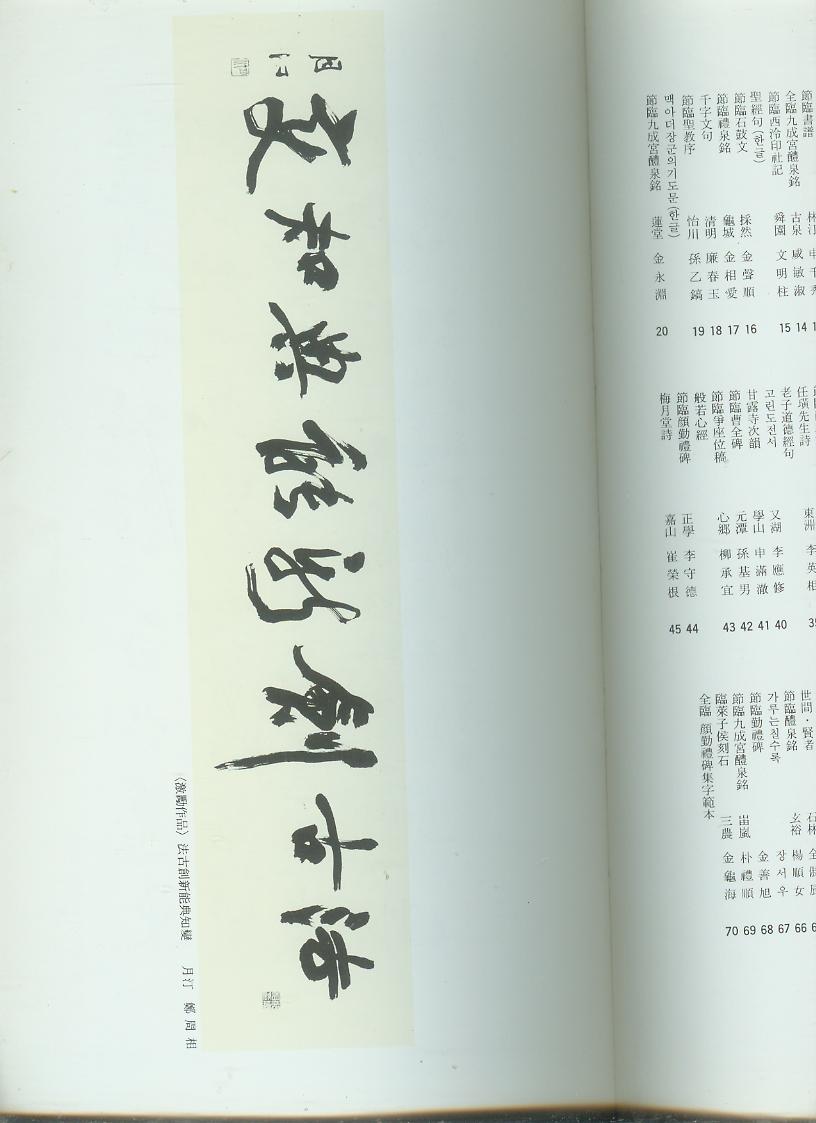 法古創新能典知變
月汀
〈激勵作品〉法古創新能典知變 月汀 鄭周相
節臨書譜 林汀
全臨九成宮醴泉銘 古泉 咸敏淑 14
節臨西泠印社記 舜園 文明柱 15
聖經句(한글)
節臨石鼓文 採然 金聲順 16
節臨禮泉銘 龜城 金相愛 17
千字文句 淸明 廉春玉 18
節臨聖敎序 怡川 孫乙鎬 19
맥아더장군의기도문(한글)
節臨九成宮醴泉銘 蓮堂 金永淵 20
任璜先生詩 東洲 李英相
老子道德經句
고린도전서 又湖 李應修 40
甘露寺次韻 學山 申滿澈 41
節臨曹全碑 元潭 孫基男 42
節臨爭座位稿 心鄕 柳承宜 43
般若心經
節臨顔勤禮碑 正學 李守德 44
梅月堂詩 嘉山 崔榮根 45
世間·賢者 石林
節臨醴泉銘 玄裕 楊順女 66
가루는칠수록 장서우 67
節臨勤禮碑 金善旭 68
節臨九成宮醴泉銘 峀嵐 朴禮順 69
臨萊子侯刻石 三農 金龜海 70
全臨 顔勤禮碑集字範本